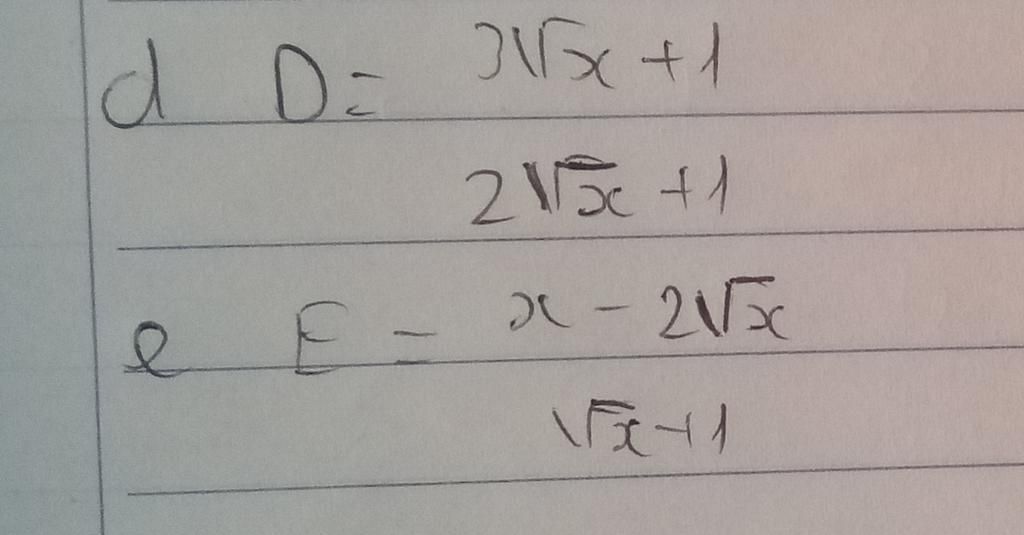 d D = 3√x + 1
2√x + 1
e E = x - 2√x
√x + 1